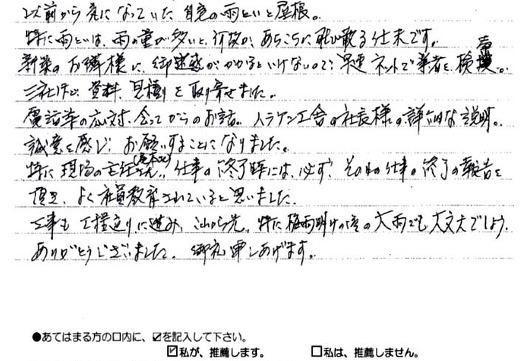 以前から気になっていた 自宅の雨といと屋根。
特に雨といは、雨の量が多いと、汚泥が、あちらこちらに飛び散る仕末です。
新築のお隣様に、御迷惑がかかるといけないので、早速ネットで業者を検索。
三社ほど 資料、見積りを取り寄せました。
電話等の応対、会ってからのお話。ムラケン工舎の社長様の詳細な説明。
誠意を感じ お願いすることになりました。
特に現場の主任さん、仕事の終了時には、必ず、その日の仕事の終了の報告を
頂き、よく社員教育されていると思いました。
工事も工程通りに進み、これから先、特に梅雨明けの頃の大雨でも大丈夫でしょう。
ありがとうございました。御礼申しあげます。
●あてはまる方の□内に、☑を記入して下さい。
☑私が、推薦します。 □私は、推薦しません。